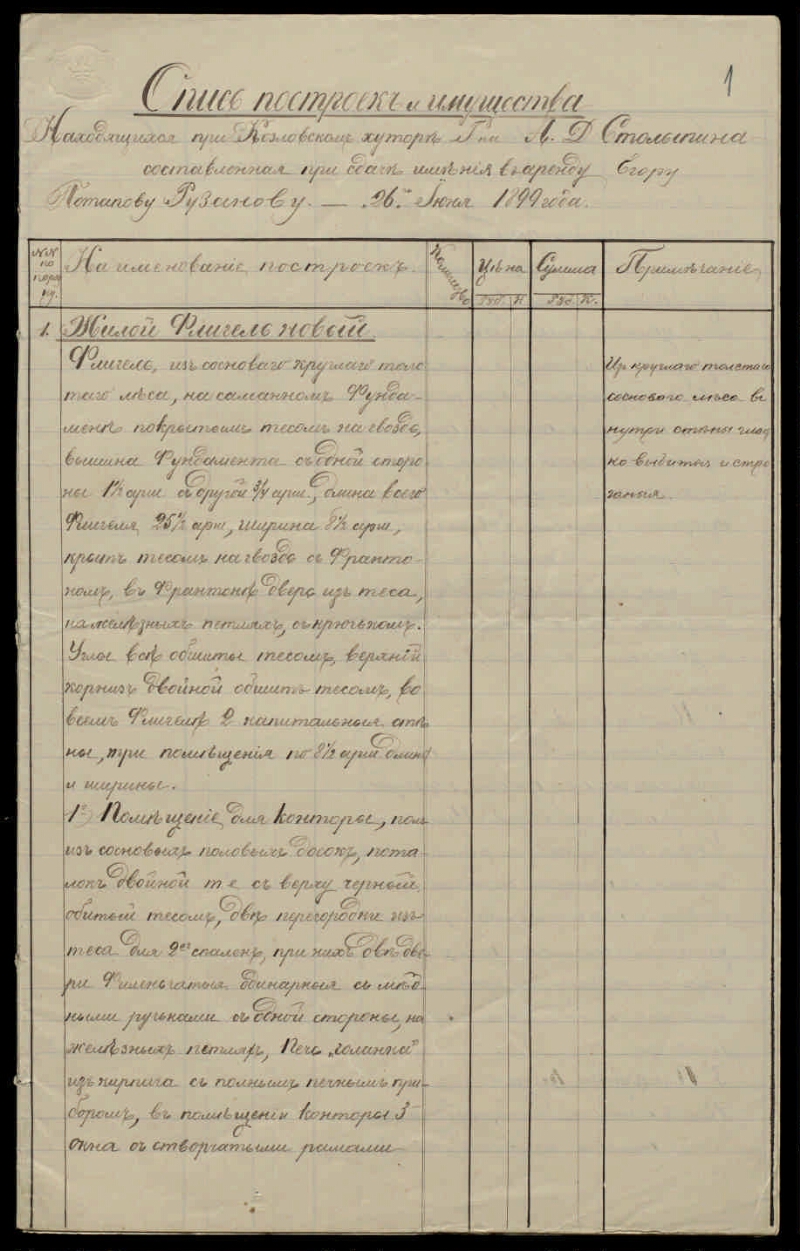 1
Спись построекъ и имущества
Находящихся при Козловскомъ хуторѣ Гна А. Д Столыпина
составленная при сдачѣ имѣнія въ аренду Егору
Потапову Рузанову. — 26го Іюня 1899 года.
№№ по поряд ку.
Наименованіе построекъ.
Количество
Цѣна
Сумма
Примѣчаніе
Руб. К
Руб. К.
1. Жилой Флигель новый.
Флигель, изъ сосноваго круглаго толс
таго лѣса, на саманномъ Фунда-
ментѣ покрытымъ тесомъ на гвоздь,
вышина Фундамента съ одной сторо
ны 1½ арш съ другой ¾ арш, длина всего
Флигеля 25½ арш, ширина 8½ арш,
крытъ тесомъ на гвоздь съ Франто-
номъ, въ Франтонѣ дверь изъ теса,
на желѣзныхъ петляхъ, съ крючькомъ.
Углы всѣ обшиты тесомъ, верхній
корнизъ двойной обшитъ тесомъ, во
всемъ Флигелѣ 2 капитальныя стѣ
ны, три помѣщенія по 8½ арш длины
и ширины.
1е Помѣщеніе для конторы, полъ
изъ сосновыхъ половыхъ досокъ, пота
локъ двойной т е съ верху черный
обитый тесомъ, двѣ перегородки изъ
теса для 2хъ спаленъ, при нихъ двѣ две
ри Филеньчатыя одинарныя съ мѣд
ными ручьками съ одной стороны, на
желѣзныхъ петляхъ, Печь „голанка"
изъ кирпича съ полнымъ печнымъ при
боромъ, въ помѣщеніи конторы 3
окна съ створчатыми рамами
Изъ круглаго толстаго
сосноваго лѣса въ
нутри стѣны глад
ко выбиты и стро
ганыя.